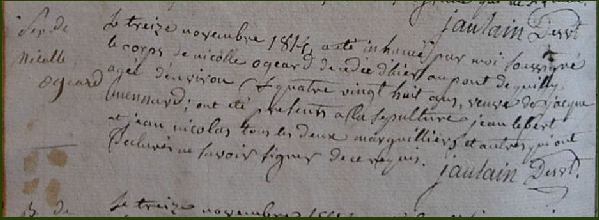 jaulain Dess.t
Sep. de
nicolle
ogeard
Le treize novembre 1814, a été inhumé par moi soussigné
le corps de nicolle ogeard decedée d'hier au pont de quilly
agée d'environ quatre vingt huit ans, veuve de jacque
mennard; ont été presents a la sepulture jean lebert
et jean nicolas tous les deux marguilliers, et autres qui ont
declarés ne savoir signer de ce requis. jaulain Dess.t
Le treize novembre